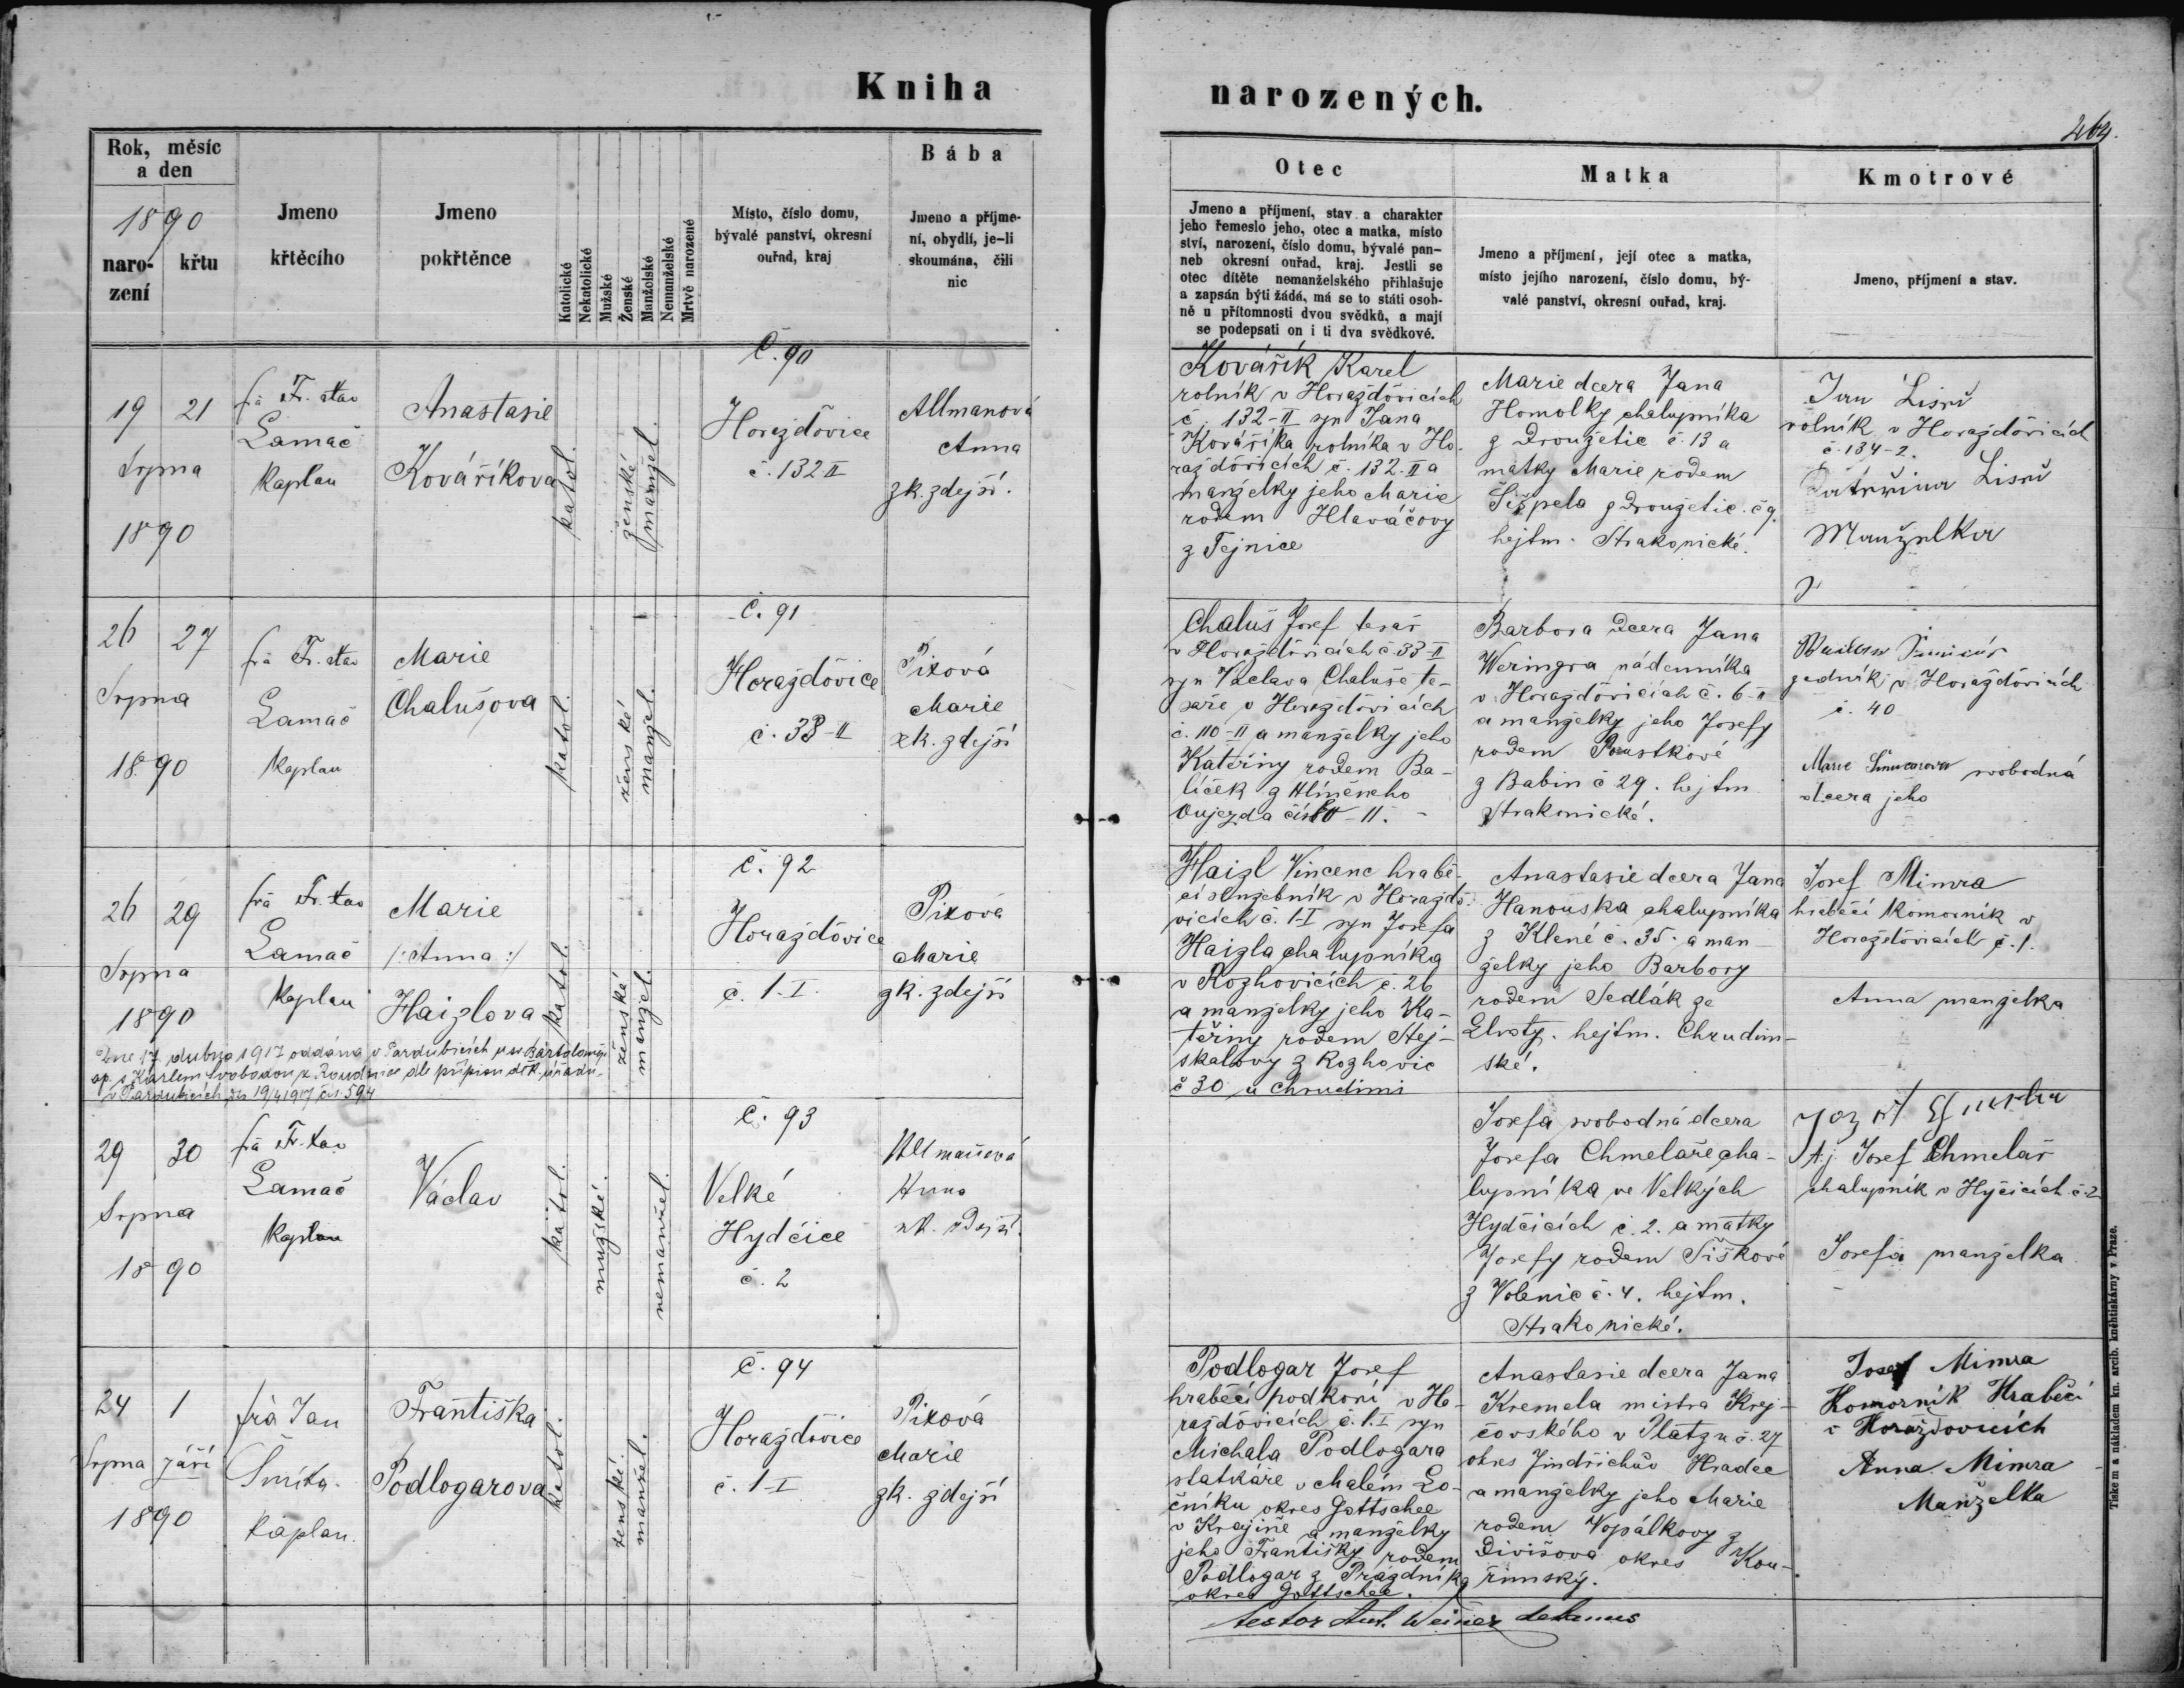 Kniha narozených.
464.
Rok, měsíc
a den
1890
naro-
zení
křtu
Jmeno
křtěcího
Jmeno
pokřtěnce
Katolické
Nekatolické
Mužské
Ženské
Manželské
Nemanželské
Mrtvě narozené
Místo, číslo domu,
bývalé panství, okresní
ouřad, kraj
Bába
Jmeno a příjme-
ní, obydlí, je-li
skoumána, čili
nic
Otec
Jmeno a příjmení, stav a charakter
jeho řemeslo jeho, otec a matka, místo
ství, narození, číslo domu, bývalé pan-
neb okresní ouřad, kraj. Jestli se
otec dítěte nemanželského přihlašuje
a zapsán býti žádá, má se to státi osob-
ně u přítomnosti dvou svědků, a mají
se podepsati on i ti dva svědkové.
Matka
Jmeno a příjmení, její otec a matka,
místo jejího narození, číslo domu, bý-
valé panství, okresní ouřad, kraj.
Kmotrové
Jmeno, příjmení a stav.
19 21
Srpna
1890
Lamač
Kaplan
Anastasie
Kováříkova
katol.
ženské
manžel.
Č. 90
Horažďovice
č. 132 II
Allmanová
Anna
zk. zdejší.
Kovářík Karel
rolník v Horažďovicích
č. 132-II syn Jana
Kováříka rolníka v Ho-
ražďovicích č. 132. II a
manželky jeho Marie
rodem Hlaváčovy
z Tejnice
Marie dcera Jana
Homolky chalupníka
z Droužetic č. 13 a
matky Marie rodem
z Droužetic č 9.
hejtm. Strakonické.
Jan
rolník v Horažďovicích
č. 134-2.
Manželka
26 27
Srpna
1890
Lamač
Kaplan
Marie
Chalušova
katol.
ženské
manžel.
Č. 91
Horažďovice
č. 33-II
Pixová
Marie
zk. zdejší
Chaluš Josef tesař
v Horažďovicích č. 33-II
syn Václava Chaluše te-
saře v Horažďovicích
č. 110-II a manželky jeho
Kateřiny rodem Ba-
líček z Hliněného
Oujezda
Barbora dcera Jana
Weringra nádenníka
v Horažďovicích č. 6-II
a manželky jeho Josefy
rodem Poustkové
z Babin č 29. hejtm
Strakonické.
v Horažďovicích
č. 40
Marie svobodná
dcera jeho
26 29
Srpna
1890
Lamač
Kaplan
Marie
/: Anna :/
Haizlova
katol.
ženské
manžel.
Č. 92
Horažďovice
č. 1-I.
Pixová
Marie
zk. zdejší
Dne 17. dubna 1917 oddána v Pardubicích u sv Bartoloměje
ap. s Karlem Svobodou z Roudnice dle přípisu děk. úřadu
v Pardubicích ze 19/4 1917 čís. 594
Haizl Vincenc hrabě-
cí služebník v Horažďo-
vicích č. 1-I syn Josefa
Haizla chalupníka
v Rozhovicích č. 26
a manželky jeho Ka-
teřiny rodem Stej-
skalovy z Rozhovic
č 30 u Chrudimi
Anastasie dcera Jana
Hanouska chalupníka
z Klené č. 35. a man-
želky jeho Barbory
rodem Sedlák ze
Lhoty. hejtm. Chrudim-
ské.
Josef Mimra
hraběcí komorník v
Horažďovicích č. 1.
Anna manželka
29 30
Srpna
1890
Lamač
Kaplan
Václav
katol.
mužské.
nemanžel.
Č. 93
Velké
Hydčice
č. 2
Anna
zk. zdejší.
Josefa svobodná dcera
Josefa Chmelaře cha-
lupníka ve Velkých
Hydčicích č. 2. a matky
Josefy rodem Šiškové
z Volenic č. 4. hejtm.
Strakonické.
t.j. Josef Chmelař
chalupník v Hyčicích č. 2
Josefa manželka
24 1
Srpna září
1890
Jan
Šmíta.
kaplan.
Františka
Podlogarova
katol.
ženské.
manžel.
Č. 94
Horažďovice
č. 1-I
Pixová
Marie
zk. zdejší
Podlogar Josef
hraběcí podkoní v Ho-
ražďovicích č. 1. I syn
Michala Podlogara
statkáře v Malém Lo-
čníku okres Gottschee
v Krajině a manželky
jeho Františky rodem
Podlogar z Prázdníka
okres Gottschee.
Anastasie dcera Jana
Kremela mistra Krej-
čovského v Platzu č. 27
okres Jindřichův Hradec
a manželky jeho Marie
rodem Vopálkovy z
Divišova okres Kou-
řimský.
Josef Mimra
Komorník Hraběcí
v Horažďovicích
Anna Mimra
Manželka
Tiskem a nákladem kn. arcib. kněhtiskárny v Praze.